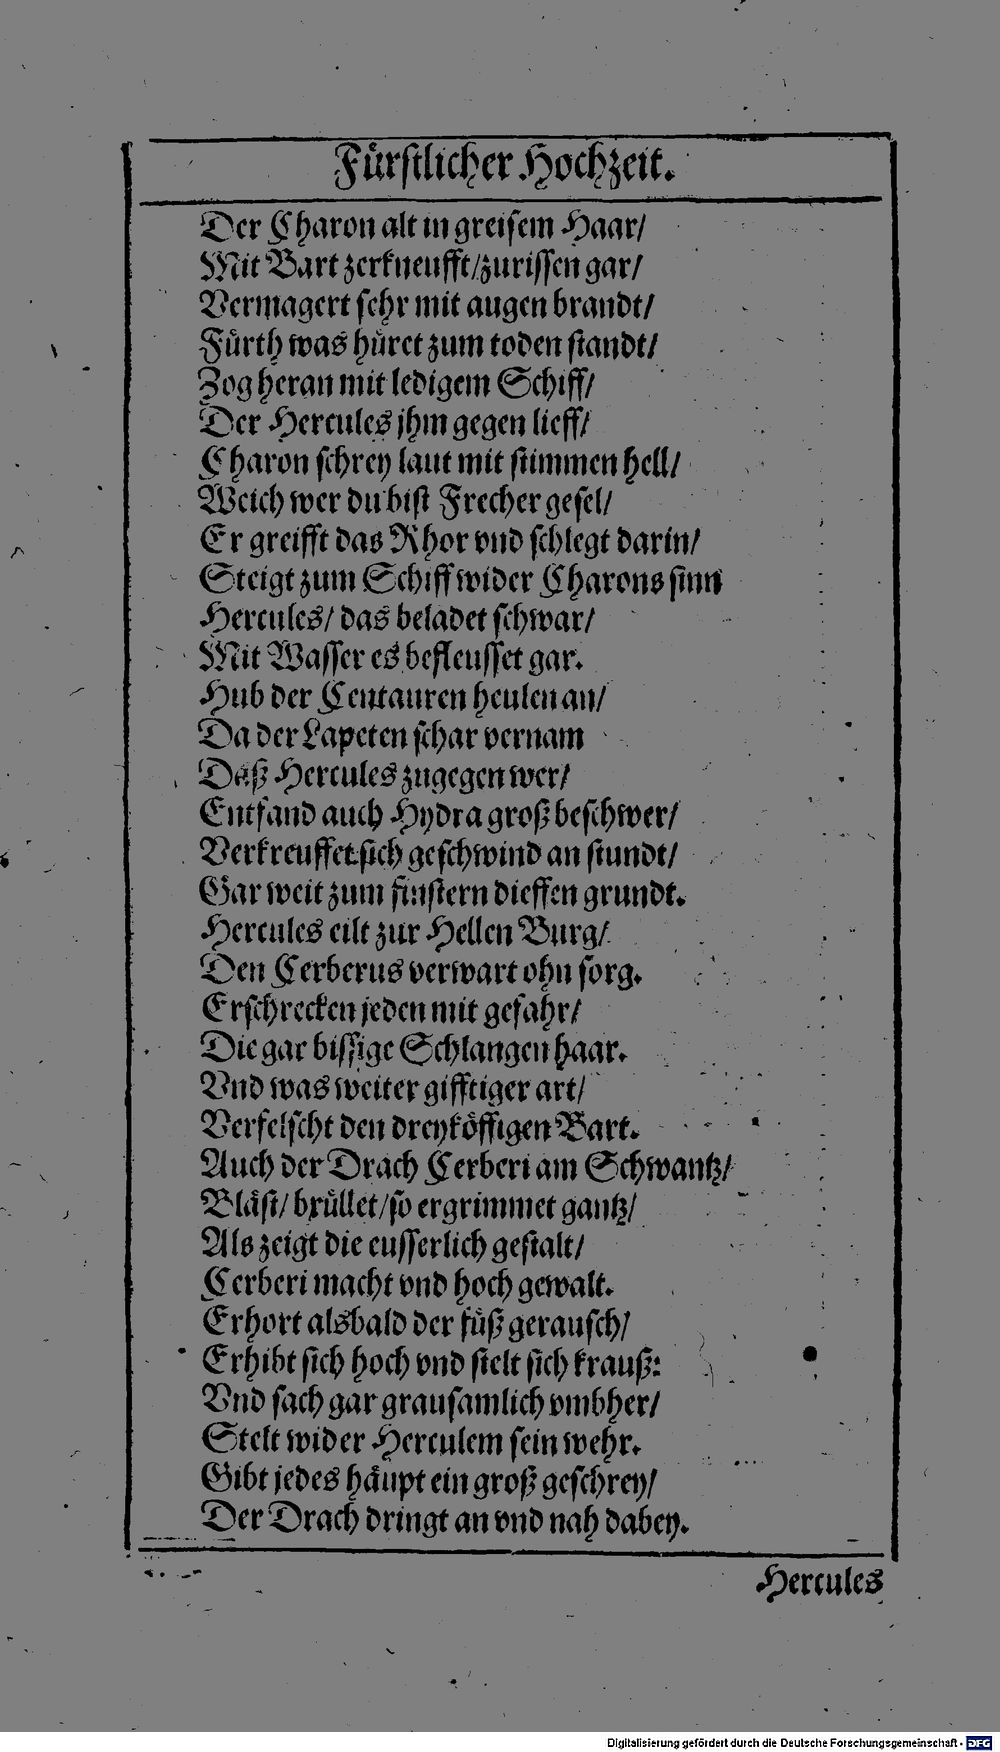 Fürstlicher Hochzeit.
Der Charon alt in greisem Haar/
Mit Bart zerkneufft/zurissen gar/
Vermagert sehr mit augen brandt/
Fürth was hüret zum toden standt/
Zog heran mit ledigem Schiff/
Der Hercules jhm gegen lieff/
Charon schrey laut mit stimmen hell/
Weich wer du bist Frecher gesel/
Er greifft das Rhor vnd schlegt darin/
Steigt zum Schiff wider Charons sinn
Hercules/ das beladet schwar/
Mit Wasser es befleusset gar.
Hub der Centauren heulen an/
Da der Lapeten schar vernam
Daß Hercules zugegen wer/
Entfand auch Hydra groß beschwer/
Verkreuffet sich geschwind an stundt/
Gar weit zum finstern dieffen grundt.
Hercules eilt zur Hellen Burg/
Den Cerberus verwart ohn sorg.
Erschrecken jeden mit gefahr/
Die gar bissige Schlangen haar.
Vnd was weiter gifftiger art/
Verfelscht den dreyköffigen Bart.
Auch der Drach Cerberi am Schwantz/
Bläst/ brüllet/so ergrimmet gantz/
Als zeigt die eusserlich gestalt/
Cerberi macht vnd hoch gewalt.
Erhort alsbald der füß gerausch/
Erhibt sich hoch vnd stelt sich krauß:
Vnd sach gar grausamlich vmbher/
Stelt wider Herculem sein wehr.
Gibt jedes häupt ein groß geschrey/
Der Drach dringt an vnd nah dabey.
Hercules
Digitalisierung gefördert durch die Deutsche Forschungsgemeinschaft - DFG